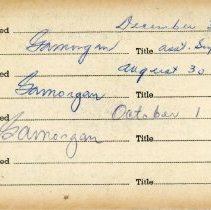 ed December
Gamorgan Title asst. Su
ed August 30
Gamorgan Title
ed October 1
Gamorgan Title
ed
Title